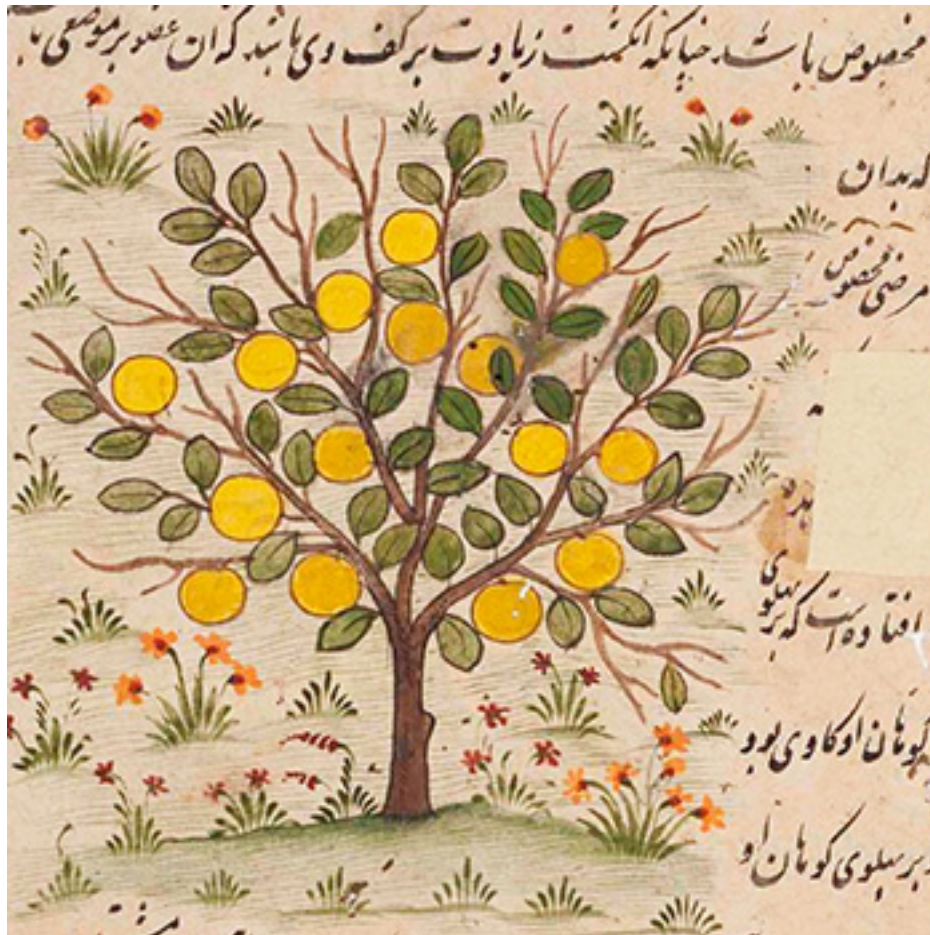 مخصوص باشد چنانکه انگشت زیادت بر کف وی باشد که ان عضو بر موضعی با
که بدان
مرضی مخصوص
افتاده است که بر پهلوی
کوهان او کاوی بود
بر پهلوی کوهان او